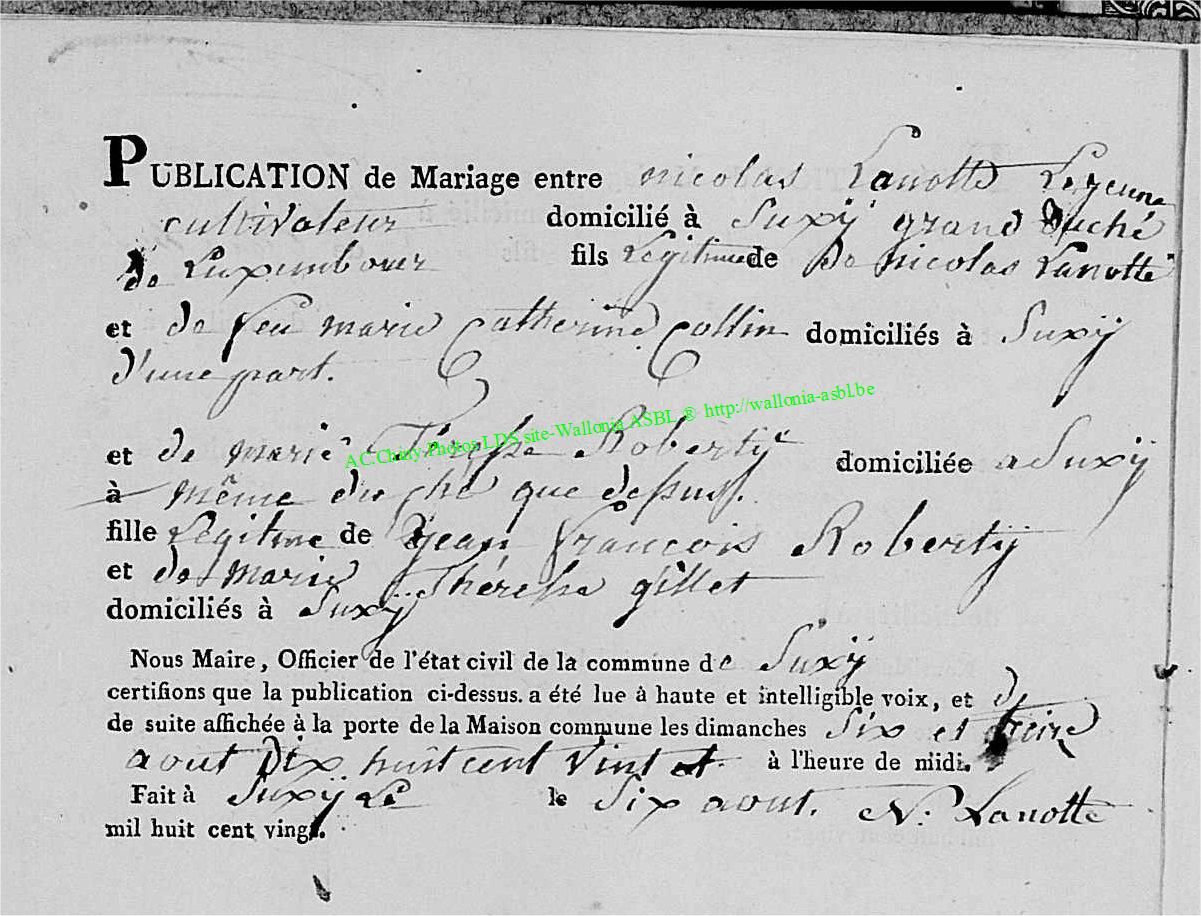 PUBLICATION de Mariage entre nicolas Lanotte Lejeune
cultivateur domicilié à Suxÿ grand duché
de Luxembour fils Legitime de De nicolas Lanotte
et de feu marie Catherine Collin domiciliés à Suxÿ
d'une part.
AC.Chiny-Photos LDS site-Wallonia ASBL ® http://wallonia-asbl.be
et de marie Thérese Robertÿ domiciliée a Suxÿ
à même duché que dessus.
fille Légitime de jean françois Robertÿ
et de marie Thérese gillet
domiciliés à Suxÿ
Nous Maire, Officier de l'état civil de la commune de Suxÿ
certifions que la publication ci-dessus. a été lue à haute et intelligible voix, et
de suite affichée à la porte de la Maison commune les dimanches Six et treize
aout Dix huit cent vint à l'heure de midi.
Fait à Suxÿ Le le Six aout. N: Lanotte
mil huit cent vingt.